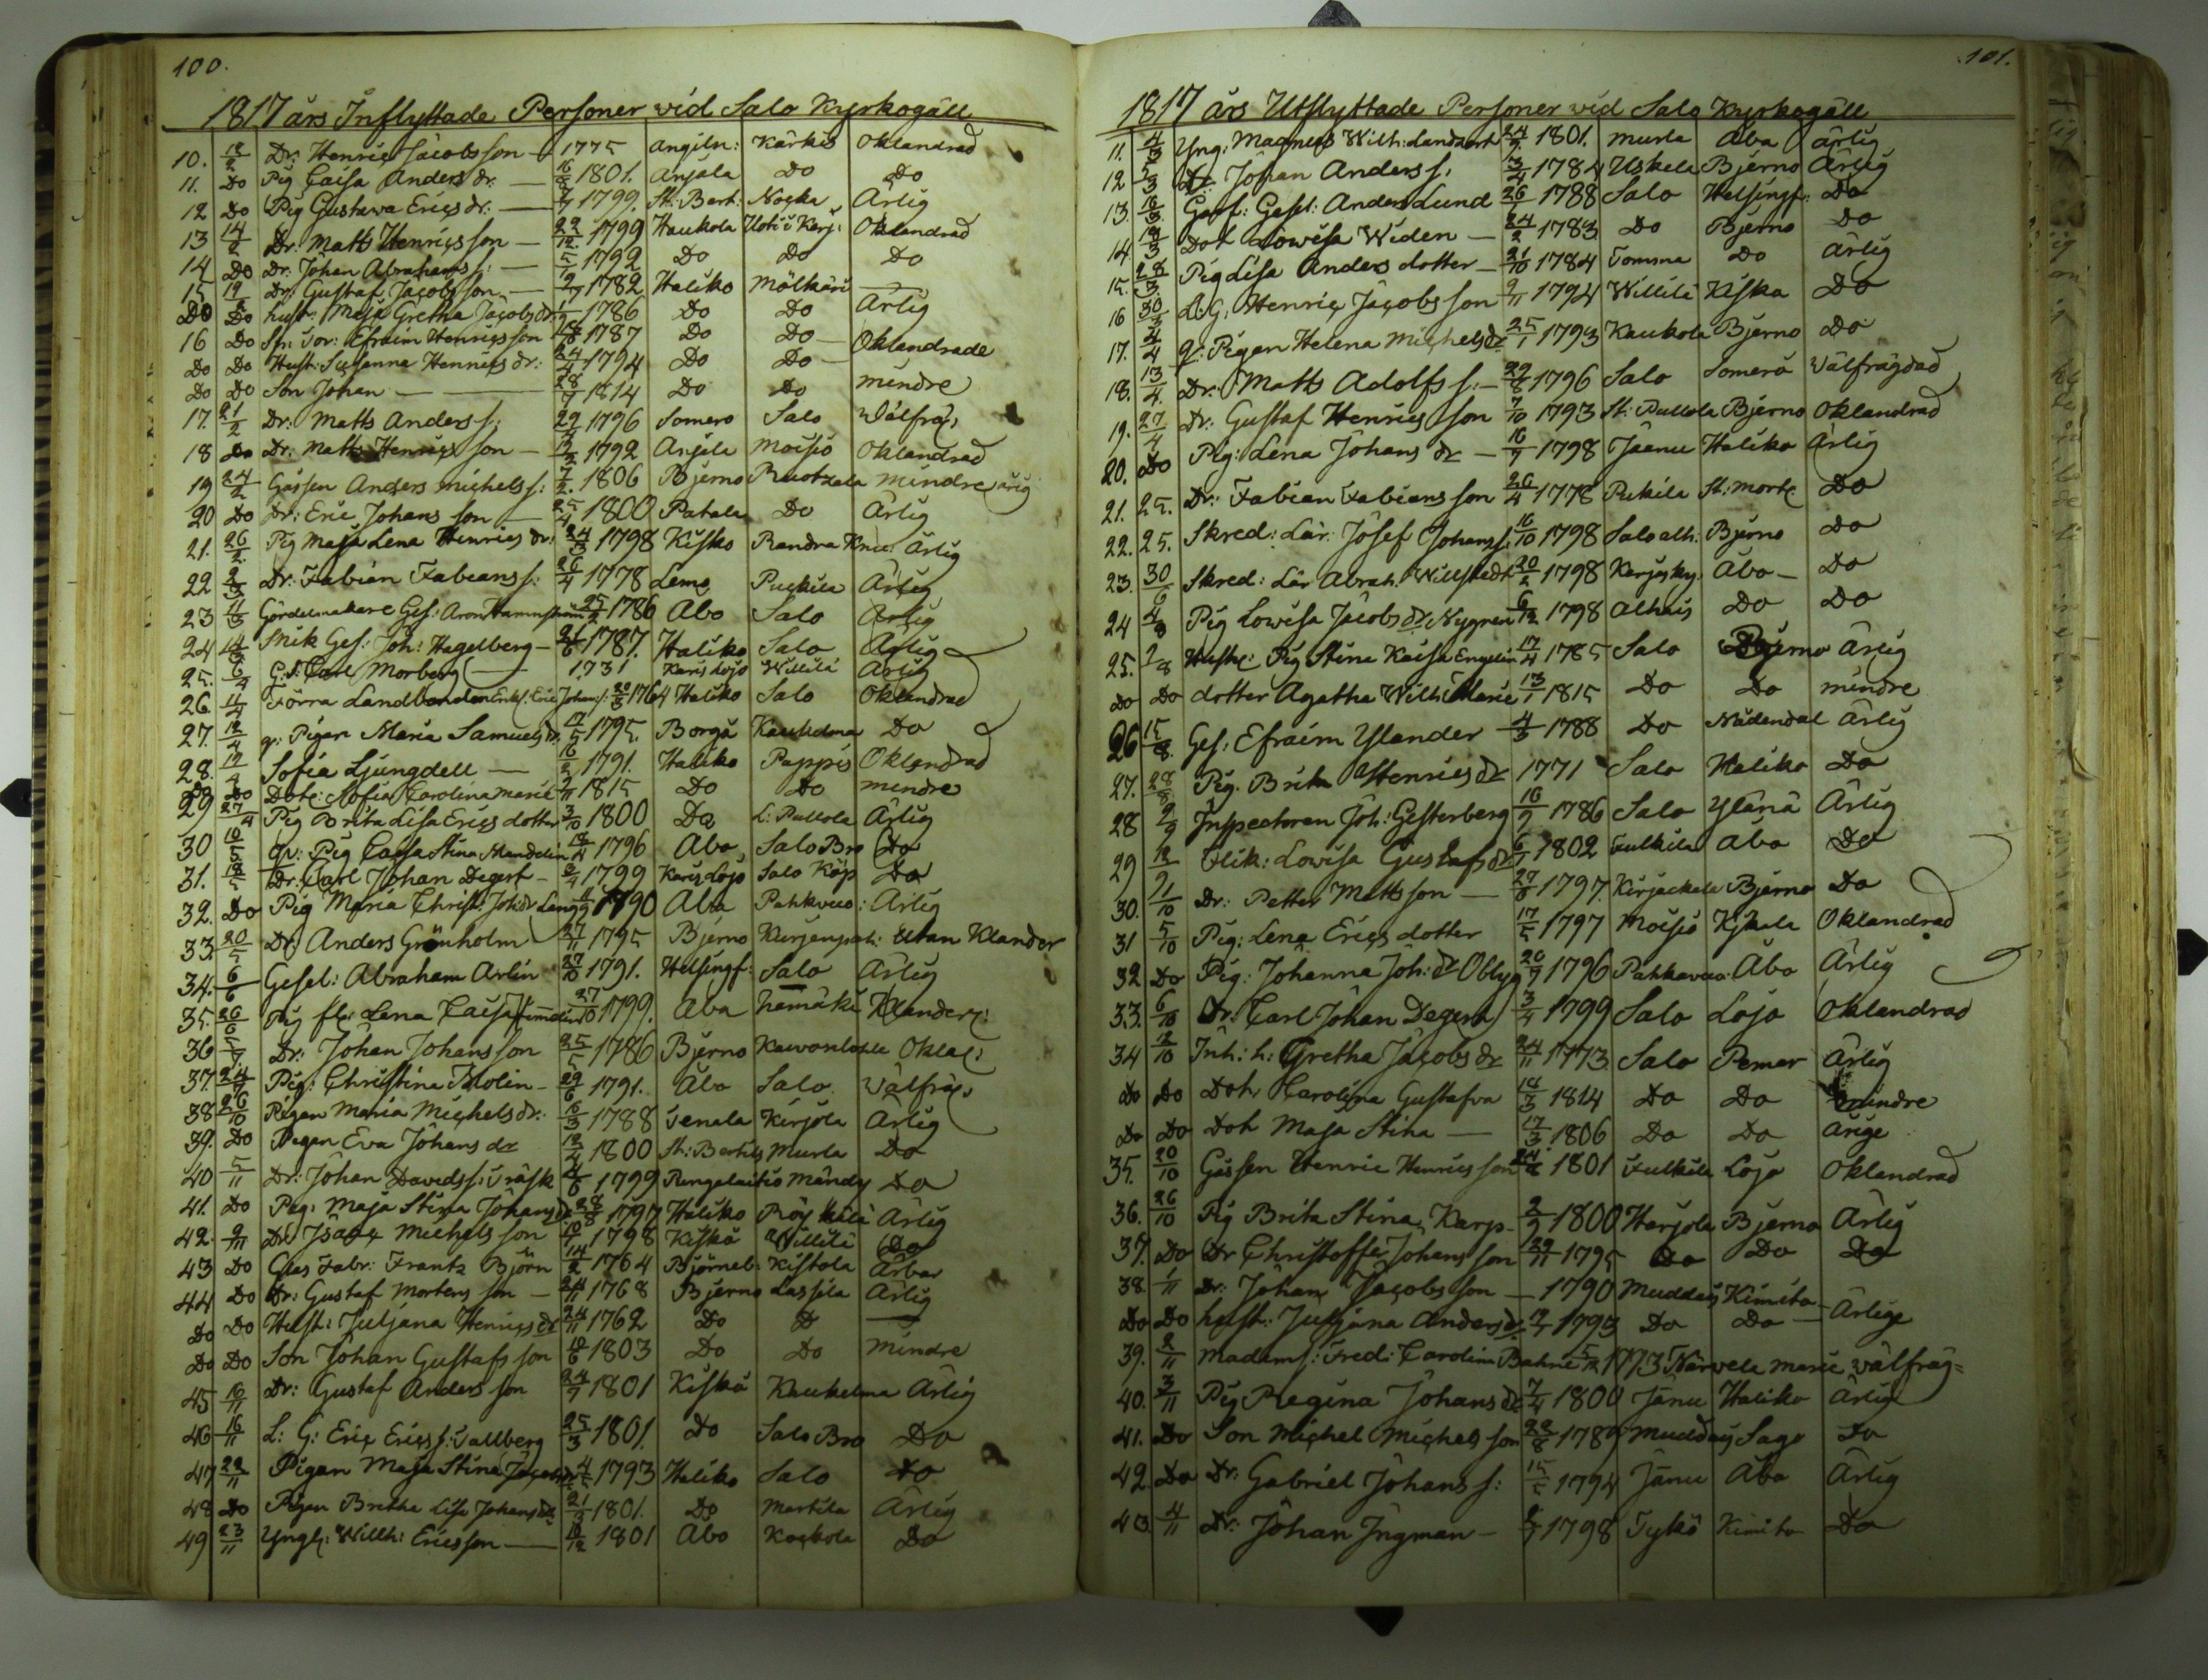 100.
1817 års Inflyttade Personer vid Salo Kyrkogäll
10. 12/2 Dr: Henric Jacobsson — 1775 Angiln: Kärkis Oklandrad
11. Do Pig Caisa Anders dr. — 1801. Anjala Do Do
12 Do Pig Gustawa Erics dr: — 1799. St: Bert: Nocka Ärlig
13 14/2 Dr: Matts Henricsson — 22/12 1799 Haukola Oklandrad
14 Do Dr: Johan Abrahams s: — 5/1 1792 Do Do Do
15 Dr: Gustaf Jacobsson — 1782 Haliko Mölkäri —
Do Do hustr: Maja Gretha Jacobs dr 1786 Do Do Ärlig
16 Do Efraim Henricsson 1787 Do Do — Oklandrade
Do Do Hust: Susanna Henrics dr: 24/4 1794 Do Do —
Do Do Son Johan — 28/7 1814 Do Do mindre
17. 21/2 Dr: Matts Anders s: 1796 Somero Salo Välfrä:
18 Do Dr: Matts Henricsson — 1792 Anjala Moisio Oklandrad
19 24/2 Gåssen Anders Michels s: 7/2 1806 Bjerno Ruotzala mindre årig
20 Do Dr: Eric Johansson — 25/4 1800 Patala Do Ärlig
21. 26/2 Pig Maja Lena Henrics dr: 24/3 1798 Kisko Randra Ärlig
22 2/3 Dr: Fabian Fabians s: 26/4 1778 Lemo Puckila Ärlig
23 11/3 Gördelmakare Ges: Aron 25/2 1786 Abo Salo Ärlig
24 14/3 Snik Ges: Joh: Hagelberg — 21/6 1787. Haliko Salo Ärlig
25. 6/4 G:s: Carl Morberg — 1731 Karis Lojo Willilä Ärlig
26. 11/4 Förra Landbonden Enkl: Eric Johans s: 20/3 1764 Haliko Salo Oklandrad
27. 12/4 q: Pigan Maria Samuels dr 1795. Borgå Kaukelma Do
28. 12/4 Sofia Ljungdell — 16/2 1791. Haliko Pappis Oklandrad
Do Do Dotr: Sofia Carolina Marie 1815 Do Do mindre
29 27/4 Pig Brita Lisa Erics dotter 3/10 1800 Do L: Pullola Ärlig
30 10/5 Qv: Pig Caisa Stina Mandelin 1796 Abo Salo Bro Do
31. 18/5 Dr: Carl Johan Degert — 3/4 1799 Karis Lojo Salo Köp Do
32. Do Pig Maria Christ: Joh: dr Lang 1790 Abo Pahkvuo: Ärlig
33. 20/5 Dr: Anders Grönholm 27/11 1795 Bjerno Utan Klander
34. 6/6 Gesel: Abraham Arlin 27/10 1791. Helsingf: Salo Ärlig
35. 26/6 Pig Lena Caisa 27/10 1799. Abo Klander:
36 5/7 Dr: Johan Johansson 25/5 1786 Bjerno Oklad:
37. 24/7 Pig: Christina Molin — 29/6 1791. Åbo Salo. Välfräj:
38 26/10 Pigan Maria Michels dr: 16/3 1788 Tenala Kirjola Ärlig
39. Do Pigan Eva Johans dr 12/4 1800 St: Bertils Murla Do
40 5/11 Dr: Johan Davids s: Träsk 4/6 1799 Rengalaitio Do
41. Do Pig: Maja Stina Johans dr 28/8 1797 Haliko Ärlig
42. 9/11 Dr: Isaac Michelsson 1798 Kisko Willilä Do
43 Do Glas Fabr: Frantz Björn 14/2 1764 Björneb: Kistola Ärbar
44 Do Dr: Gustaf Mortensson — 24/11 1768 Bjerno Lassila Ärlig
Do Do Hust: Juljana Henrics dr 24/11 1762 Do D —
Do Do Son Johan Gustafsson 18/6 1803 Do Do mindre
45 10/11 Dr: Gustaf Andersson 24/7 1801 Kisko Kaukelma Ärlig
46 16/11 L: G: Eric Erics s: Tallberg 25/3 1801. Do Salo Bro Do
47 22/11 Pigan Maja Stina Jacobs dr 4/5 1793 Haliko Salo Do
48 Do Pigan Britha Lisa Johans dr 1801. Do Martila Ärlig
49 23/11 Yngl: Willh: Ericsson — 18/12 1801 Abo Kockola Do
101.
1817 års Utflyttade Personer vid Salo Kyrkogäll
11. 4/3 Yng: Magnus Wilh: Landzert 24/7 1801. Murla Åbo ärlig
12 5/3 Dr: Johan Anders s: 13/4 1784 Uskela Bjerno Ärlig
13. 16/3 Garf: Gesel: Anders Lund 26/1 1788 Salo Helsingf: Do
14. 19/3 Dotr Lowisa Widen — 24/2 1783 Do Bjerno Do
15. 28/3 Pig Lisa Anders dotter — 21/10 1784 Tomma Do Ärlig
16 30/3 L:G: Henric Jacobsson 9/11 1794 Willilä Kisko Do
17. 2/4 q: Pigan Helena Michels dr 25/1 1793 Kaukola Bjerno Do
18. 13/4 Dr: Matts Adolfs s: — 29/8 1796 Salo Somero Välfrägdad
19. 27/4 Dr: Gustaf Henricsson 7/10 1793 St: Pullola Bjerno Oklandrad
20. Do Pig: Lena Johans dr — 16/7 1798 Jaenu Haliko Ärlig
21. 25. Dr: Fabian Fabiansson 26/4 1778 Pukila St: Mort: Do
22. 25. Skred: Lär: Josef Johans s: 16/10 1798 Salo alh: Bjerno Do
23. 30/6 Skred: Lär Abrah: Willstedt 20/2 1798 Kerjasky: Åbo — Do
24 4/8 Pig Lowisa Jacobs dr Nygren 6/12 1798 Alhais Do Do
25. 7/8 Husk: Pig Stina Kaisa Engelin 17/4 1785 Salo Bjerno Ärlig
Do Do dotter Agatha Wilh: Marie 13/1 1815 Do Do mindre
26 15/8 Ges: Efraim Ylander 4/3 1788 Do Nådendal Ärlig
27. 28/8 Pig. Brita Henrics dr 1771 Salo Haliko Do
28 9/9 Inspectoren Joh: Gesterberg 16/7 1786 Salo Yläna Ärlig
29 12/9 Flik: Lowisa Gustafs dr 1802 Fulkila Abo Do
30. 1/10 Dr: Petter Mattsson — 27/6 1797. Kirjackala Bjerno Do
31 5/10 Pig: Lena Erics dotter 17/5 1797 Moisio Kiskala Oklandrad
32 Do Pig: Johanna Joh: dr Oblyg 20/7 1796 Pahkavuo: Åbo Ärlig
33. 6/10 Dr: Carl Johan Degert 3/4 1799 Salo Lojo Oklandrad
34 Inh: h: Gretha Jacobs dr 24/11 1773 Salo Pemar Ärlig
Do Do Dotr Carolina Gustafva 18/3 1814 Do Do mindre
Do Do Dotr Maja Stina — 17/3 1806 Do Do årige
35. 20/10 Gåssen Henric Henricsson 1801 Fulkila Lojo Oklandrad
36. 26/10 Pig Brita Stina Karp — 2/7 1800 Harjola Bjerno Ärlig
37. Do Dr Christoffer Johansson 29/11 1795 Do Do Do
38. 1/11 Dr: Johan Jacobsson — 1790 Muddais Kimito
Do Do hustr: Juljana Anders dr 1793 Do Do — Ärlige
39. 2/11 Madam s: Fred: Carolina Bahne 1773 Närvela Marie välfräg=
40. 3/11 Pig Regina Johans dr 7/4 1800 Jänu Haliko Ärlig
41. Do Son Michel Michelsson 22/8 1789 Muddais Sago Do
42 Do Dr: Gabriel Johans s: 15/5 1794 Jänu Åbo Ärlig
43 4/11 Dr: Johan Ingman — 1798 Tykö Kimito Do